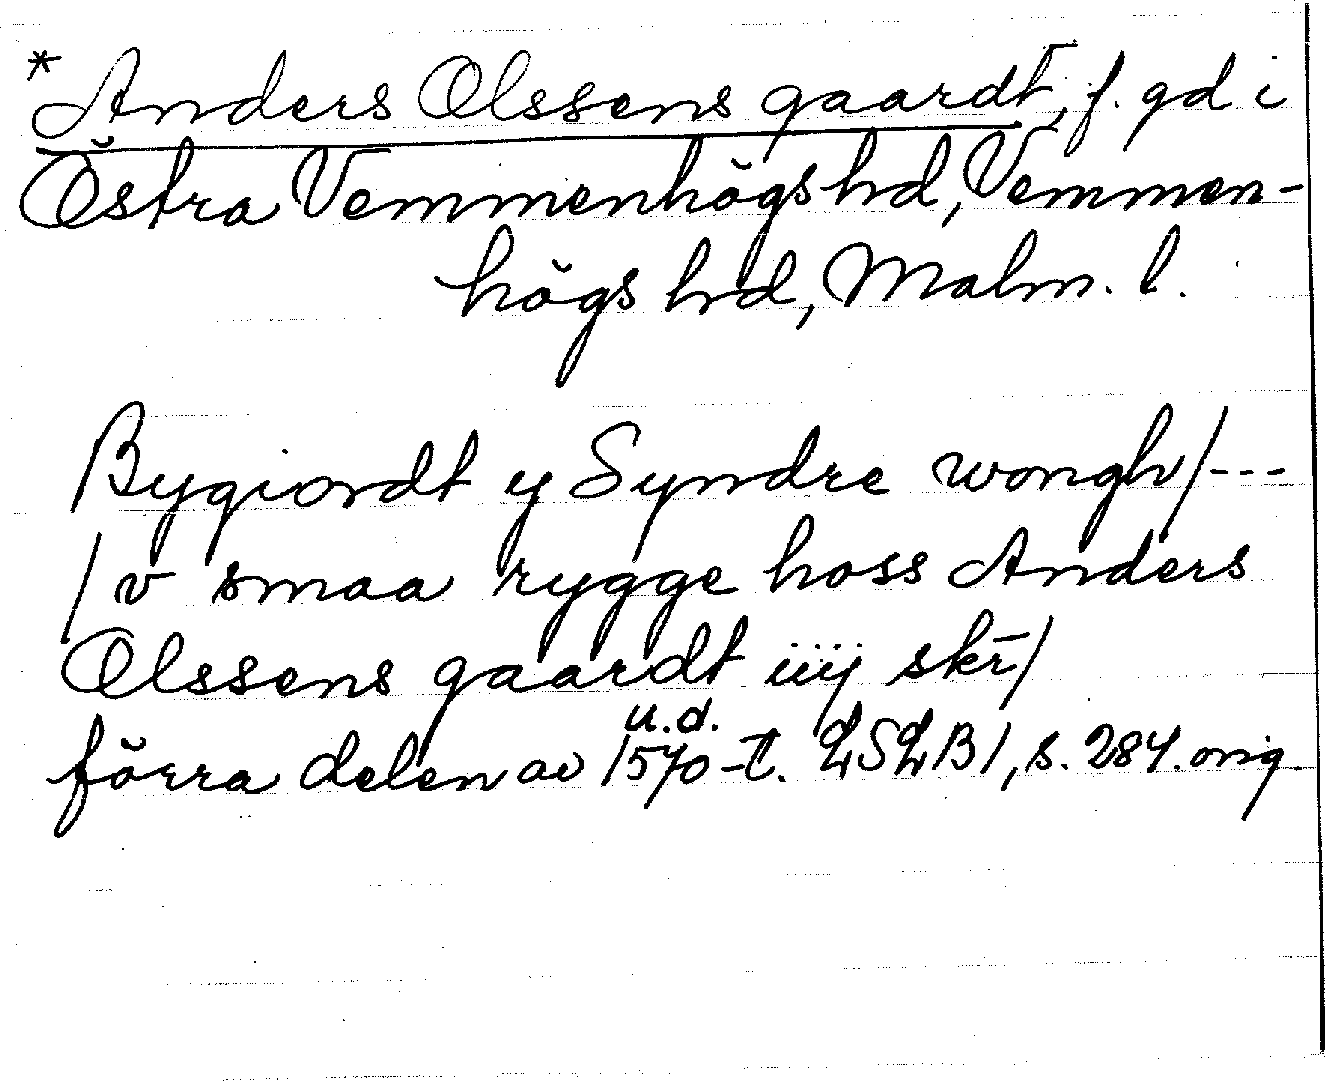 *Anders Olssens gaardt, f. gd i
Östra Vemmenhögs hd, Vemmen-
högs hd, Malm. l.
Bygiordt y Syndre wongh/---
/v smaa rygge hoss Anders
Olssens gaardt iiij skr̄/
u.d.
förra delen av 1570-t. LSLB 1, s. 284. orig.